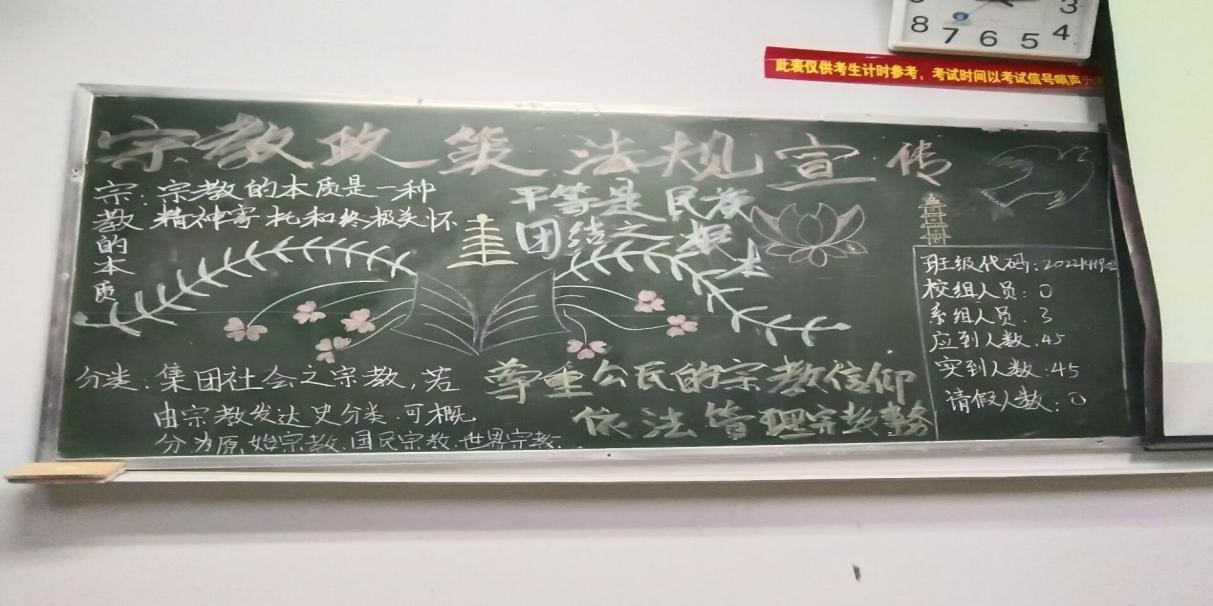 3
8 7 6 5 4
此表仅供考生计时参考，考试时间以考试信号
宗教政策法规宣传
宗教的本质
：宗教的本质是一种
精神寄托和终极关怀
平等是民族
团结之根本
班级代码：
校组人员：0
系组人员：3
应到人数：45
实到人数：45
请假人数：0
分类：集团社会之宗教，若
由宗教发达史分类，可概
分为原始宗教、国民宗教、世界宗教...
尊重公民的宗教信仰
依法管理宗教事务